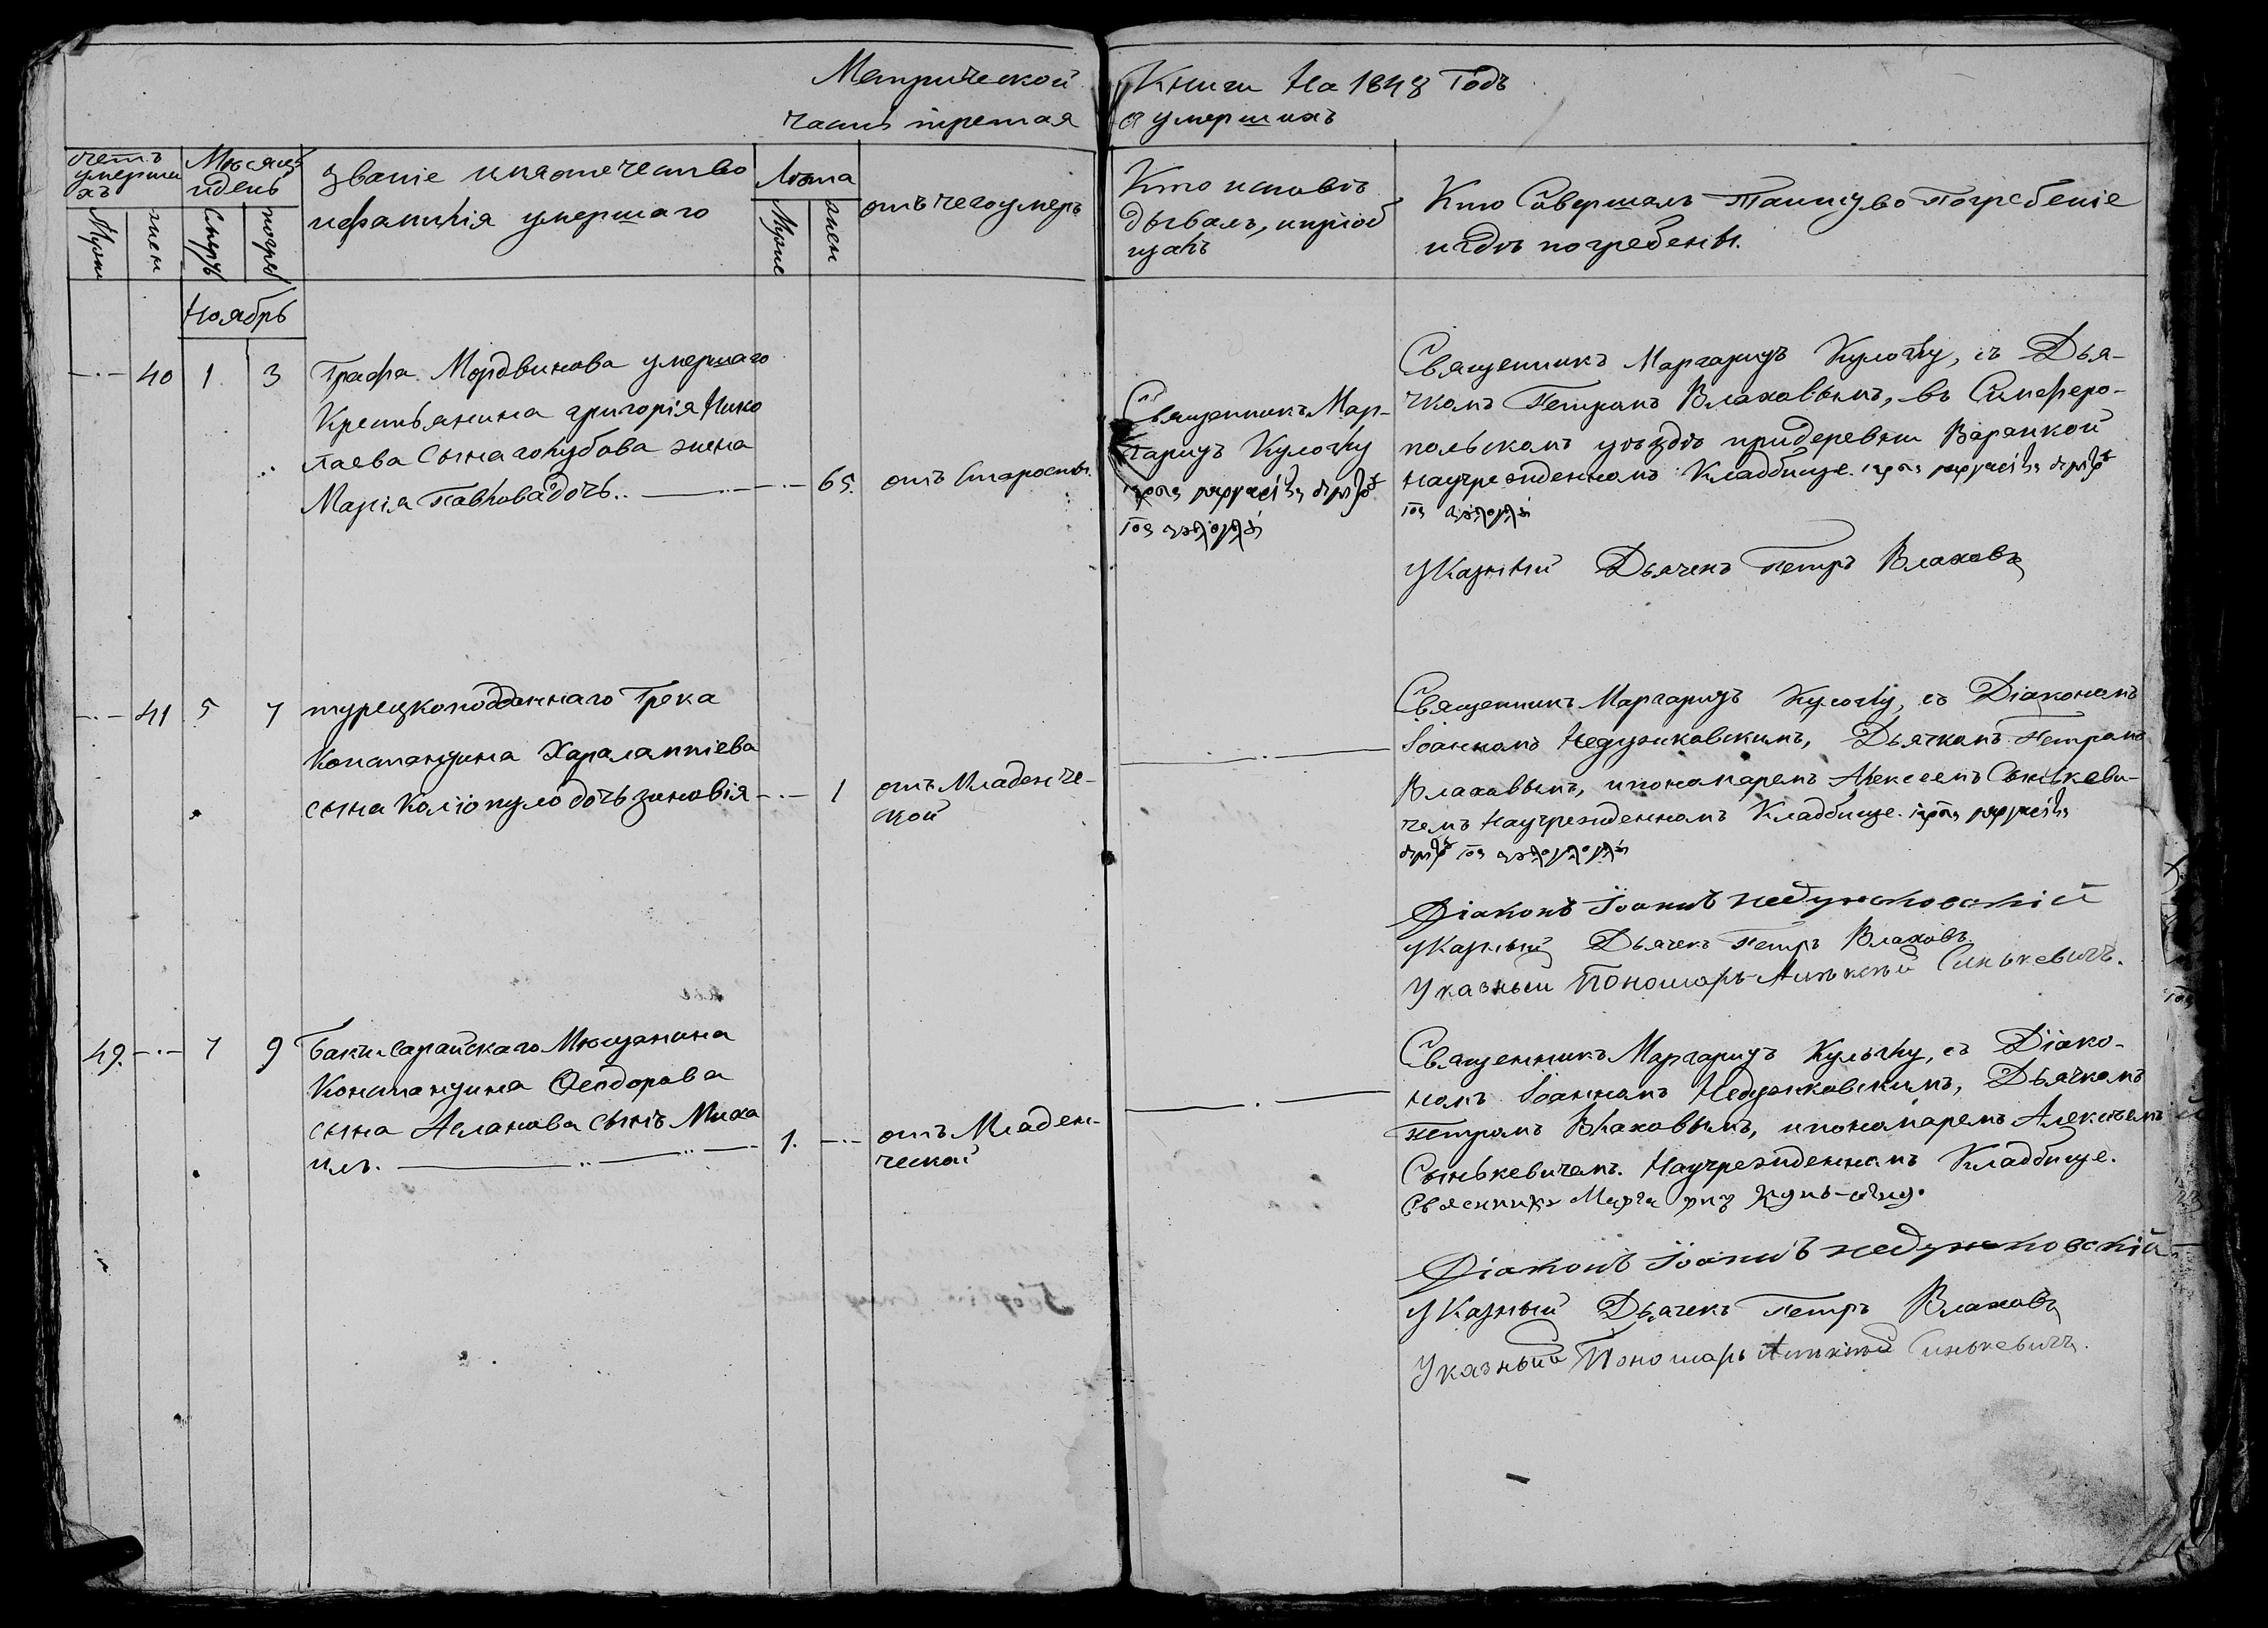 Метрической Книги На 1848 Годъ
часть третая о умершихъ
счетъ умерши хъ
Мѣсяцъ идень
Званіе имяотечество
ифамилія умершаго
Лѣта
отъ чегоумеръ
Кто исповѣ
дывалъ, иприоб
щалъ
Кто Совершалъ Таинство Погребеніе
игдѣ погребены.
Муж
жен
Смерт
погреб
Муже
жен
Ноябрь
40 1 3
Графа Мордвинова умершаго
Крестьянина григорія Нико
лаева Сына голубова жена
Марія Павлова дочь
65.
отъ Старости.
Священникъ Мар-
гаритъ
Священникъ Маргаритъ съ Дья-
чкомъ Петромъ Влаховымъ, въ Симферо-
польскомъ уѣздѣ придеревни
научрежденномъ Кладбище.
указный Дьячекъ Петръ Влаховъ
41 5 7
турецкоподданнаго Грека
Константина Харалампіева
сына Коліопуло дочь зиновія
1
отъ Младенче-
ской
Священникъ Маргаритъ съ Діакономъ
Іоанномъ Недужковскимъ, Дьячкомъ Петромъ
Влаховымъ, ипономаремъ Алексеемъ Сынькеви-
чемъ научрежденномъ Кладбище.
Діаконъ Іоаннъ недужковскій
указный Дьячекъ Петръ Влаховъ
Указный Пономарь Алексѣй Синькевичъ.
49. 7 9
Бакчисарайскаго Мѣщанина
Константина Феодорова
сына Асланова сынъ Миха
илъ.
1.
отъ Младен-
ческой
Священникъ Маргаритъ съ Діако-
номъ Іоанномъ Недужковскимъ, Дьячкомъ
Петромъ Влаховымъ, ипономаремъ Алексѣемъ
Сынькевичемъ. Научрежденномъ Кладбище.
Діаконъ Іоаннъ недужковскій
указный Дьячекъ Петръ Влаховъ
Указный Пономарь Алексѣй Синькевичъ.